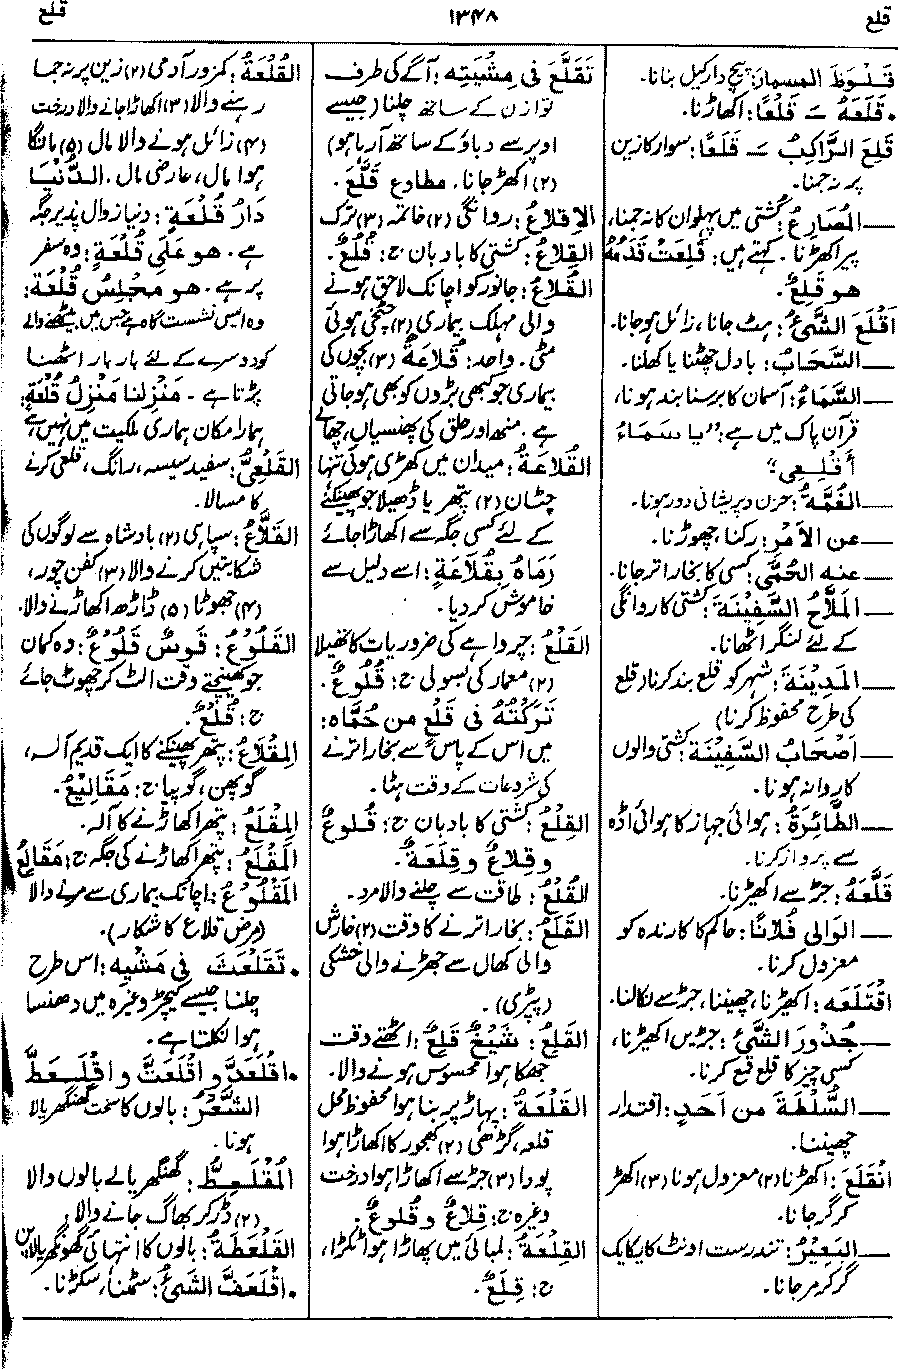 قلع ۱۳۴۸ قلع
قَلْوَظَ المسمارَ: پیچ دار کیل بنانا۔
• قَلَعَهُ ـَ قَلْعًا: اکھاڑنا۔
قَلِعَ الرَّاكِبُ ـَ قَلَعًا: سوار کا زین
پر نہ جمنا۔
— المُصَارِعُ: کشتی میں پہلوان کا نہ جمنا،
پیر اکھڑنا۔ کہتے ہیں: قَلِعَتْ قَدَمُهُ
هو قَلِعٌ۔
اَقْلَعَ الشَّیْءُ: ہٹ جانا، زائل ہو جانا۔
— السَّحَابُ: بادل چھٹنا یا کھلنا۔
— السَّمَاءُ: آسمان کا برسنا بند ہونا،
قرآن پاک میں ہے: ”یا سَمَاءُ
أَقْلِعِي“
— الغُمَّةُ: حزن و پریشانی دور ہونا۔
— عن الاَمْرِ: رکنا، چھوڑنا۔
— عنه الحُمّٰى: کسی کا بخار اتر جانا۔
— المَلَّاحُ السَّفِيْنَةَ: کشتی کا روانگی
کے لئے لنگر اٹھانا۔
— المَدِيْنَةَ: شہر کو قلع بند کرنا (قلع
کی طرح محفوظ کرنا)
— اَصْحَابُ السَّفِيْنَةِ: کشتی والوں
کا روانہ ہونا۔
— الطَّائِرَةُ: ہوائی جہاز کا ہوائی اڈہ
سے پرواز کرنا۔
قَلَّعَهُ: جڑ سے اکھیڑنا۔
— الوَالِى فُلَانًا: حاکم کا کارندہ کو
معزول کرنا۔
اقْتَلَعَه: اکھیڑنا، چھیننا، جڑ سے نکالنا۔
— جُذُورَ الشَّیْءِ: جڑیں اکھیڑنا،
کسی چیز کا قلع قمع کرنا۔
— السُّلْطَةَ مِن اَحَدٍ: اقتدار
چھیننا۔
انْقَلَعَ: اکھڑنا (۲) معزول ہونا (۳) اکھڑ
کر گر جانا۔
— البَعِيْرُ: تندرست اونٹ کا یکایک
گر کر مر جانا۔
تَقَلَّعَ فى مِشْيَتِه: آگے کی طرف
توازن کے ساتھ چلنا (جیسے
اوپر سے دباؤ کے ساتھ آرہا ہو)
(۲) اکھڑ جانا۔ مطاوع قَلَّعَ۔
الاِقلاعُ: روانگی (۲) خاتمہ (۳) ترک
القِلاعُ: کشتی کا بادبان ج: قُلُعٌ۔
القُلَاعُ: جانور کو اچانک لاحق ہونے
والی مہلک بیماری (۲) چٹخی ہوئی
مٹی۔ واحد: قُلَاعَةٌ (۳) بچوں کی
بیماری جو کبھی بڑوں کو بھی ہو جاتی
ہے۔ منھ اور حلق کی پھنسیاں، چھالے
القُلَاعَةُ: میدان میں کھڑی ہوئی تنہا
چٹان (۲) پتھر یا ڈھیلا جو پھینکنے
کے لئے کسی جگہ سے اکھاڑا جائے
رَمَاهُ بِقُلَاعَةٍ: اسے دلیل سے
خاموش کر دیا۔
القَلْعُ: چرواہے کی ضروریات کا تھیلا
(۲) معمار کی بسولی ج: قُلُوعٌ۔
تَرَكْتُهُ فى قَلْعٍ من حُمَّاه:
میں اس کے پاس سے بخار اترنے
کی شروعات کے وقت ہٹا۔
القِلْعُ: کشتی کا بادبان ج: قُلوعٌ
وقِلاعٌ وقِلَعَةٌ۔
القُلْعُ: طاقت سے چلنے والا مرد۔
القَلَعُ: بخار اترنے کا وقت (۲) خارش
والی کھال سے جھڑنے والی خشکی
(پپڑی)۔
القَلِعُ: شَيْخٌ قَلِعٌ: اٹھتے وقت
جھکا ہوا محسوس ہونے والا۔
القَلْعَةُ: پہاڑ پر بنا ہوا محفوظ محل
قلعہ، گڑھی (۲) کھجور کا اکھاڑا ہوا
پودا (۳) جڑ سے اکھاڑا ہوا درخت
وغیرہ ج: قِلَاعٌ و قُلوعٌ۔
القِلْعَةُ: لمبائی میں پھاڑا ہوا ٹکڑا،
ج: قِلَعٌ۔
القُلْعَةُ: کمزور آدمی (۲) زین پر نہ جما
رہنے والا (۳) اکھاڑا جانے والا درخت
(۴) زائل ہونے والا مال (۵) مانگا
ہوا مال، عارضی مال۔ الدُّنْيَا
دَارُ قُلْعَةٍ: دنیا زوال پذیر جگہ
ہے۔ هو عَلَى قُلْعَةٍ: وہ سفر
پر ہے۔ هو مَجْلِسُ قُلْعَةٍ:
وہ ایسی نشست گاہ ہے جس میں بیٹھنے والے
کو دوسرے کے لئے بار بار اٹھنا
پڑتا ہے۔ مَنْزِلُنَا مَنْزِلُ قُلْعَةٍ:
ہمارا مکان ہماری ملکیت میں نہیں ہے
القَلْعِىُّ: سفید سیسہ، رانگ، قلعی کرنے
کا مسالا۔
القَلَّاعُ: سپاہی (۲) بادشاہ سے لوگوں کی
شکایتیں کرنے والا (۳) کفن چور،
(۴) جھوٹا (۵) ڈاڑھ اکھاڑنے والا۔
القَلُوْعُ: قَوسٌ قَلُوْعٌ: وہ کمان
جو کھینچتے وقت الٹ کر چھوٹ جائے
ج: قُلُعٌ۔
المِقْلَاعُ: پتھر پھینکنے کا ایک قدیم آلہ،
گوپھن، گوپیا ج: مَقَالِيْعُ۔
المِقْلَعُ: پتھر اکھاڑنے کا آلہ۔
المَقْلَعُ: پتھر اکھاڑنے کی جگہ ج: مَقَالِعُ
المَقْلُوْعُ: اچانک بیماری سے مرنے والا
(مرض قلاع کا شکار)۔
• تَقَلْعَثَ فى مَشْيِه: اس طرح
چلنا جیسے کیچڑ وغیرہ میں دھنسا
ہوا نکلتا ہے۔
• اقْلَعَدَّ و اقْلَعَتَّ و اقْلَعَطَّ
الشَّعْرُ: بالوں کا سخت گھنگھریالا
ہونا۔
المُقْلَعِطُّ: گھنگھریالے بالوں والا
(۲) ڈر کر بھاگ جانے والا۔
القَلْعَطَةُ: بالوں کا انتہائی گھونگھریالا پن
• اقْلَعَفَّ الشَّیْءُ: سمٹنا، سکڑنا۔